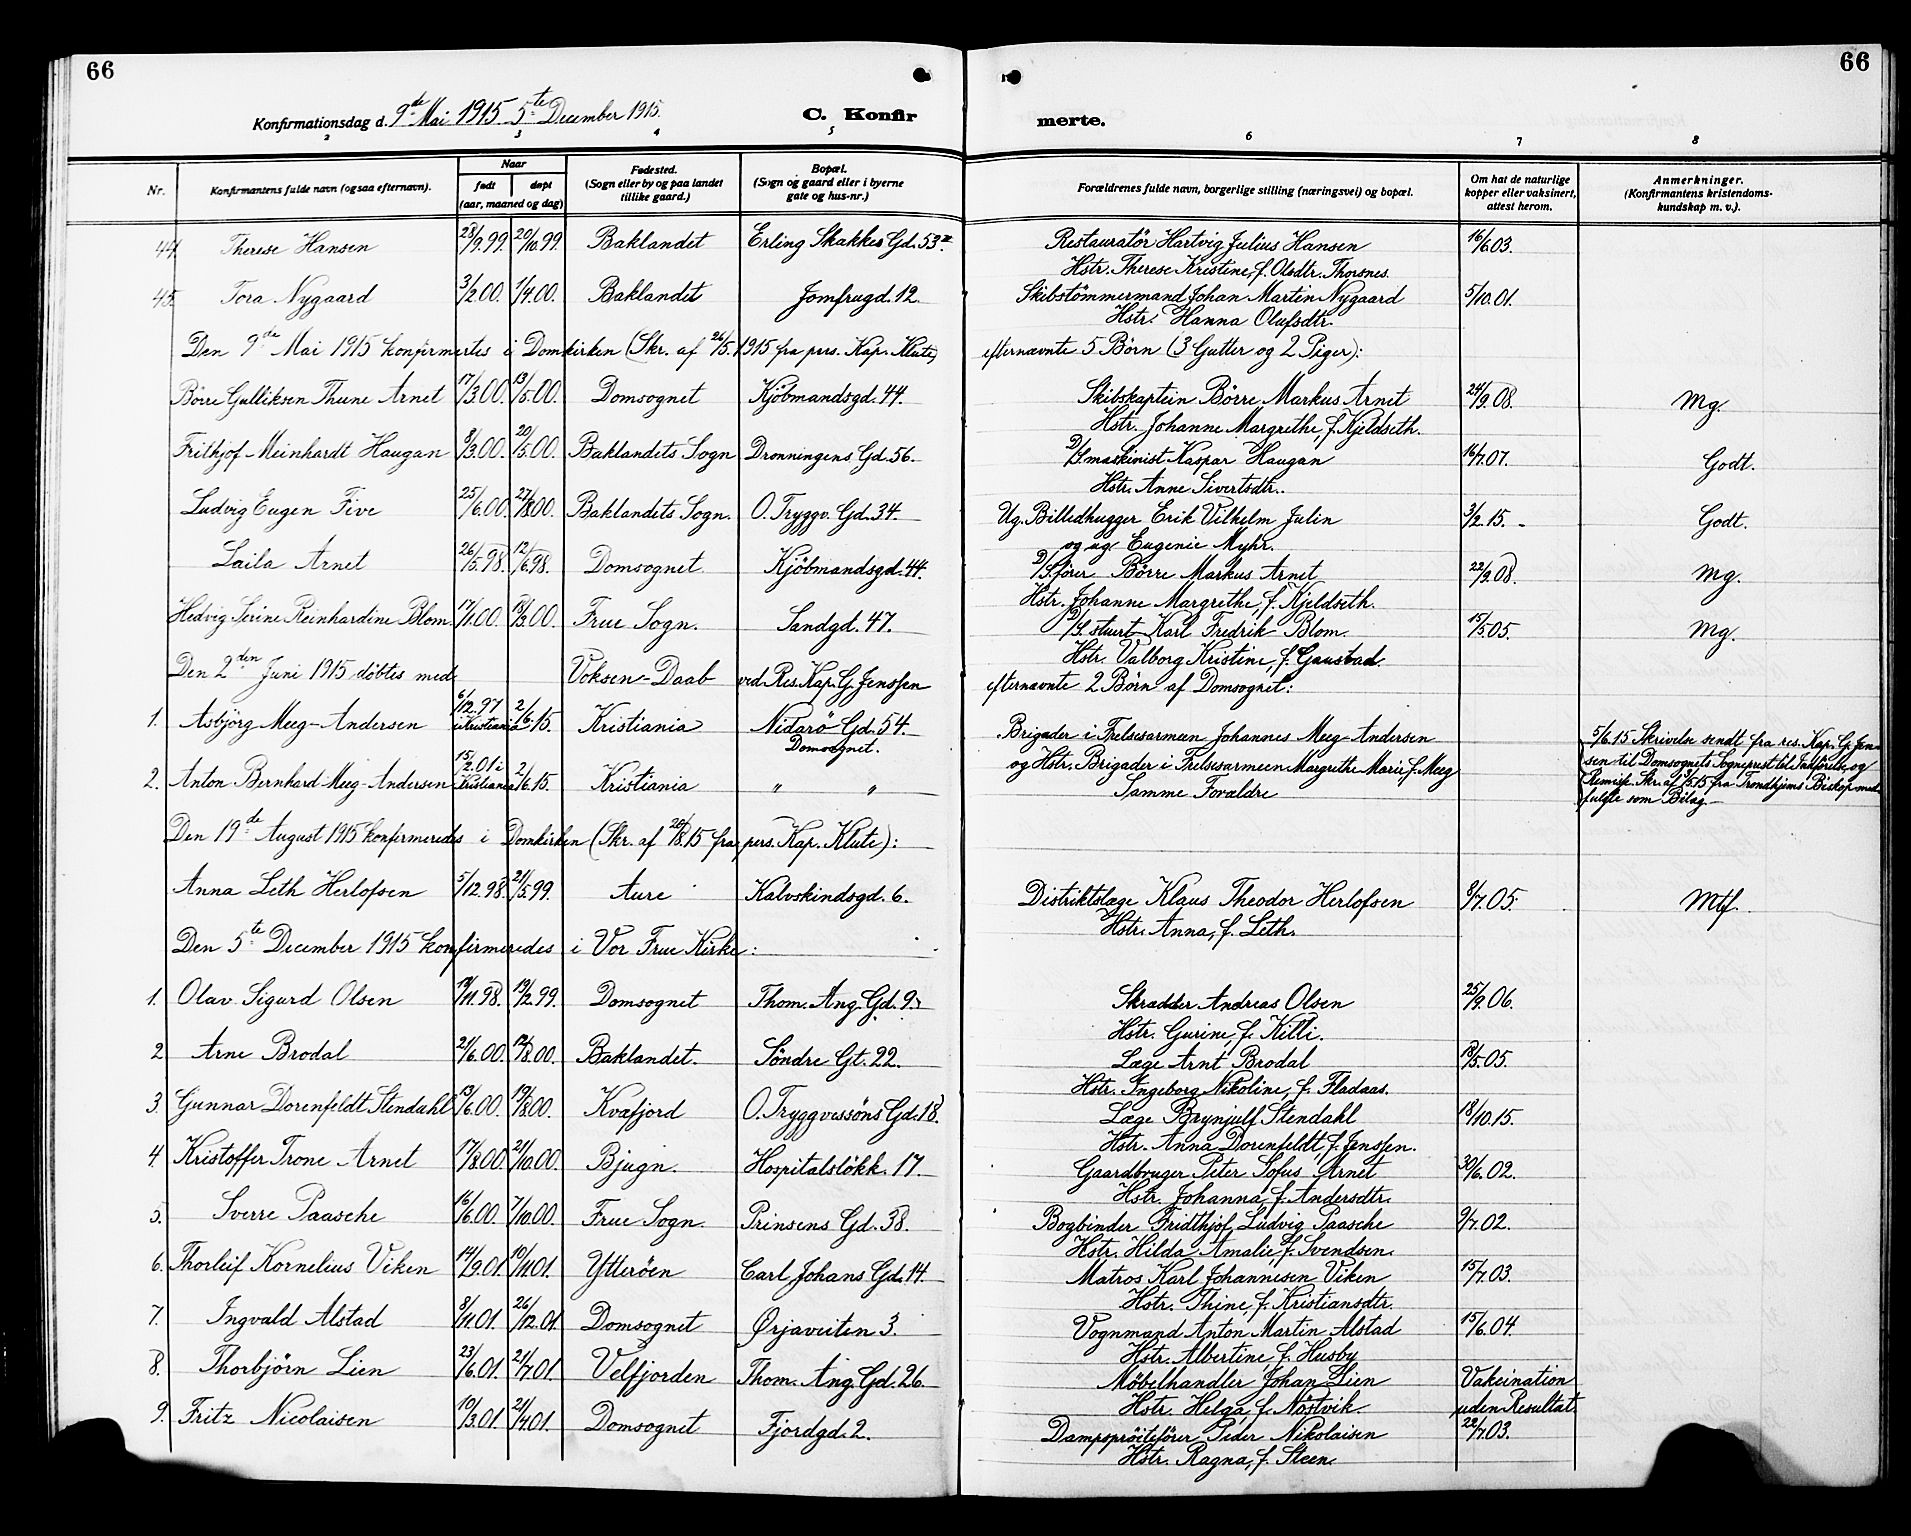 66
66
Konfirmationsdag d. 9de Mai 1915 5te December 1915.
C. Konfirmerte.
2 3 4 5 6 7 8
Nr.
Konfirmantens fulde navn (ogsaa efternavn).
Naar
født
døpt
(aar, maaned og dag)
Fødested.
(Sogn eller by og paa landet
tillike gaard.)
Bopæl.
(Sogn og gaard eller i byerne
gate og hus-nr.)
Forældrenes fulde navn, borgerlige stilling (næringsvei) og bopæl.
Om hat de naturlige
kopper eller vaksinert,
attest herom.
Anmerkninger.
(Konfirmantens kristendoms-
kundskap m. v.).
44. Therese Hansen 28/9.99. 20/10.99. Baklandet Erling Skakkes Gd. 53 Restauratör Hartvig Julius Hansen 16/6.03.
Hstr. Therese Kristine, f. Olsdtr. Thorsnes.
45. Tora Nygaard 3/2.00. 1/4.00. Baklandet Jomfrugd. 12. Skibstömmermand Johan Martin Nygaard 5/10.01.
Hstr. Hanna Olufsdtr.
Den 9de Mai 1915 konfirmertes i Domkirken (Skr. af 26/5. 1915 fra pers. Kap. Klüte) efternævnte 5 Börn (3 Gutter og 2 Piger):
Börre Gulliksen Thune Arnet 17/3.00. 13/5.00. Domsognet Kjöbmandsgd. 44. Skibskaptein Börre Markus Arnet 24/9.08. Mg.
Hstr. Johanne Margrethe, f. Kjeldseth.
Frithjof Meinhardt Haugan 8/3.00. 20/5.00. Baklandets Sogn Dronningens Gd. 56. D/S. maskinist Kaspar Haugan 16/7.07. Godt.
Hstr. Anne Sivertsdtr.
Ludvig Eugen Five 25/6.00. 27/8.00. Baklandets Sogn. O. Tryggv. Gd. 34. Ug. Billedhugger Erik Vilhelm Julin 3/2.15. Godt.
og ug. Eugenie Myhr.
Laila Arnet 26/5.98. 12/6.98. Domsognet Kjöbmandsgd. 44. D/S. förer Börre Markus Arnet 22/9.08. Mg.
Hstr. Johanne Margrethe, f. Kjeldseth.
Hedvig Serine Reinhardine Blom. 17/1.00. 18/3.00. Frue Sogn. Sandgd. 47. D/S. stuert Karl Fredrik Blom. 15/5.05. Mg.
Hstr. Valborg Kristine, f. Gaustad.
Den 2den Juni 1915 döbtes med Voksen-Daab ved Res. Kap. G. Jenssen efternævnte 2 Börn af Domsognet:
1. Asbjörg Meeg-Andersen 6/12.97 i Kristiania 2/6.15. Kristiania Nidarö Gd. 54. Domsognet. Brigader i Frelsesarmeen Johannes Meeg-Andersen
og Hstr. Brigader i Frelsesarmeen Margrethe Marie f. Meeg
5/6.15 Skrivelse sendt fra res. Kap. G. Jens-
sen til Domsognets Sogneprest til Indförelse, og
Remisse. Skr. af 3/5.15 fra Trondhjems Biskop med-
fulgte som Bilag.
2. Anton Bernhard Meeg-Andersen 15/2.01 i Kristiania 2/6.15. Kristiania " " Samme Forældre
Den 19de August 1915 konfirmeredes i Domkirken (Skr. af 20/8.15 fra pers. Kap. Klüte):
Anna Leth Herlofsen 5/12.98. 21/5.99. Aure Kalvskindsgd. 6. Distriktslæge Klaus Theodor Herlofsen 8/7.05. Mtf.
Hstr. Anna, f. Leth.
Den 5te December 1915 konfirmeredes i Vor Frue Kirke:
1. Olav Sigurd Olsen 19/11.98. 19/2.99. Domsognet Thom. Ang. Gd. 9. Skrædder Andreas Olsen 25/9.06.
Hstr. Gurine, f. Killi.
2 Arne Brodal 21/6.00. 12/8.00. Baklandet. Söndre Gt. 22. Læge Arnt Brodal 18/5.05.
Hstr. Ingeborg Nikoline, f. Fladaas.
3. Gunnar Dorenfeldt Stendahl 13/6.00. 19/8.00. Kvæfjord O. Tryggvessöns Gd. 18. Læge Brynjulf Stendahl 18/10.15.
Hstr. Anna Dorenfeldt, f. Jenssen.
4. Kristoffer Trone Arnet 17/8.00. 21/10.00. Bjugn. Hospitalslökk. 17. Gaardbruger Peter Sofus Arnet 30/6.02.
Hstr. Johanna, f. Andersdtr.
5. Sverre Paasche 16/6.00. 7/10.00. Frue Sogn. Prinsens Gd. 38. Bogbinder Fridthjof Ludvig Paasche 9/7.02.
Hstr. Hilda Amalie, f. Svendsen.
6. Thorleif Kornelius Viken 14/9.01. 10/11.01. Ytteröen Carl Johans Gd. 14. Matros Karl Johannesen Viken 15/7.03.
Hstr. Thine, f. Kristiansdtr.
7. Ingvald Alstad 8/11.01. 26/12.01. Domsognet Ørjaveiten 3. Vognmand Anton Martin Alstad 15/6.04.
Hstr. Albertine, f. Husby
8. Thorbjörn Lien 23/6.01. 21/7.01. Velfjorden Thom. Ang. Gd. 26. Møbelhandler Johan Lien Vakcination
Hstr. Helga, f. Nöstvik. uden Resultat.
9. Fritz Nicolaisen 10/3.01. 21/4.01. Domsognet Fjordgd. 2. Dampspröiteförer Peder Nikolaisen 22/7.03.
Hstr. Ragna, f. Steen.